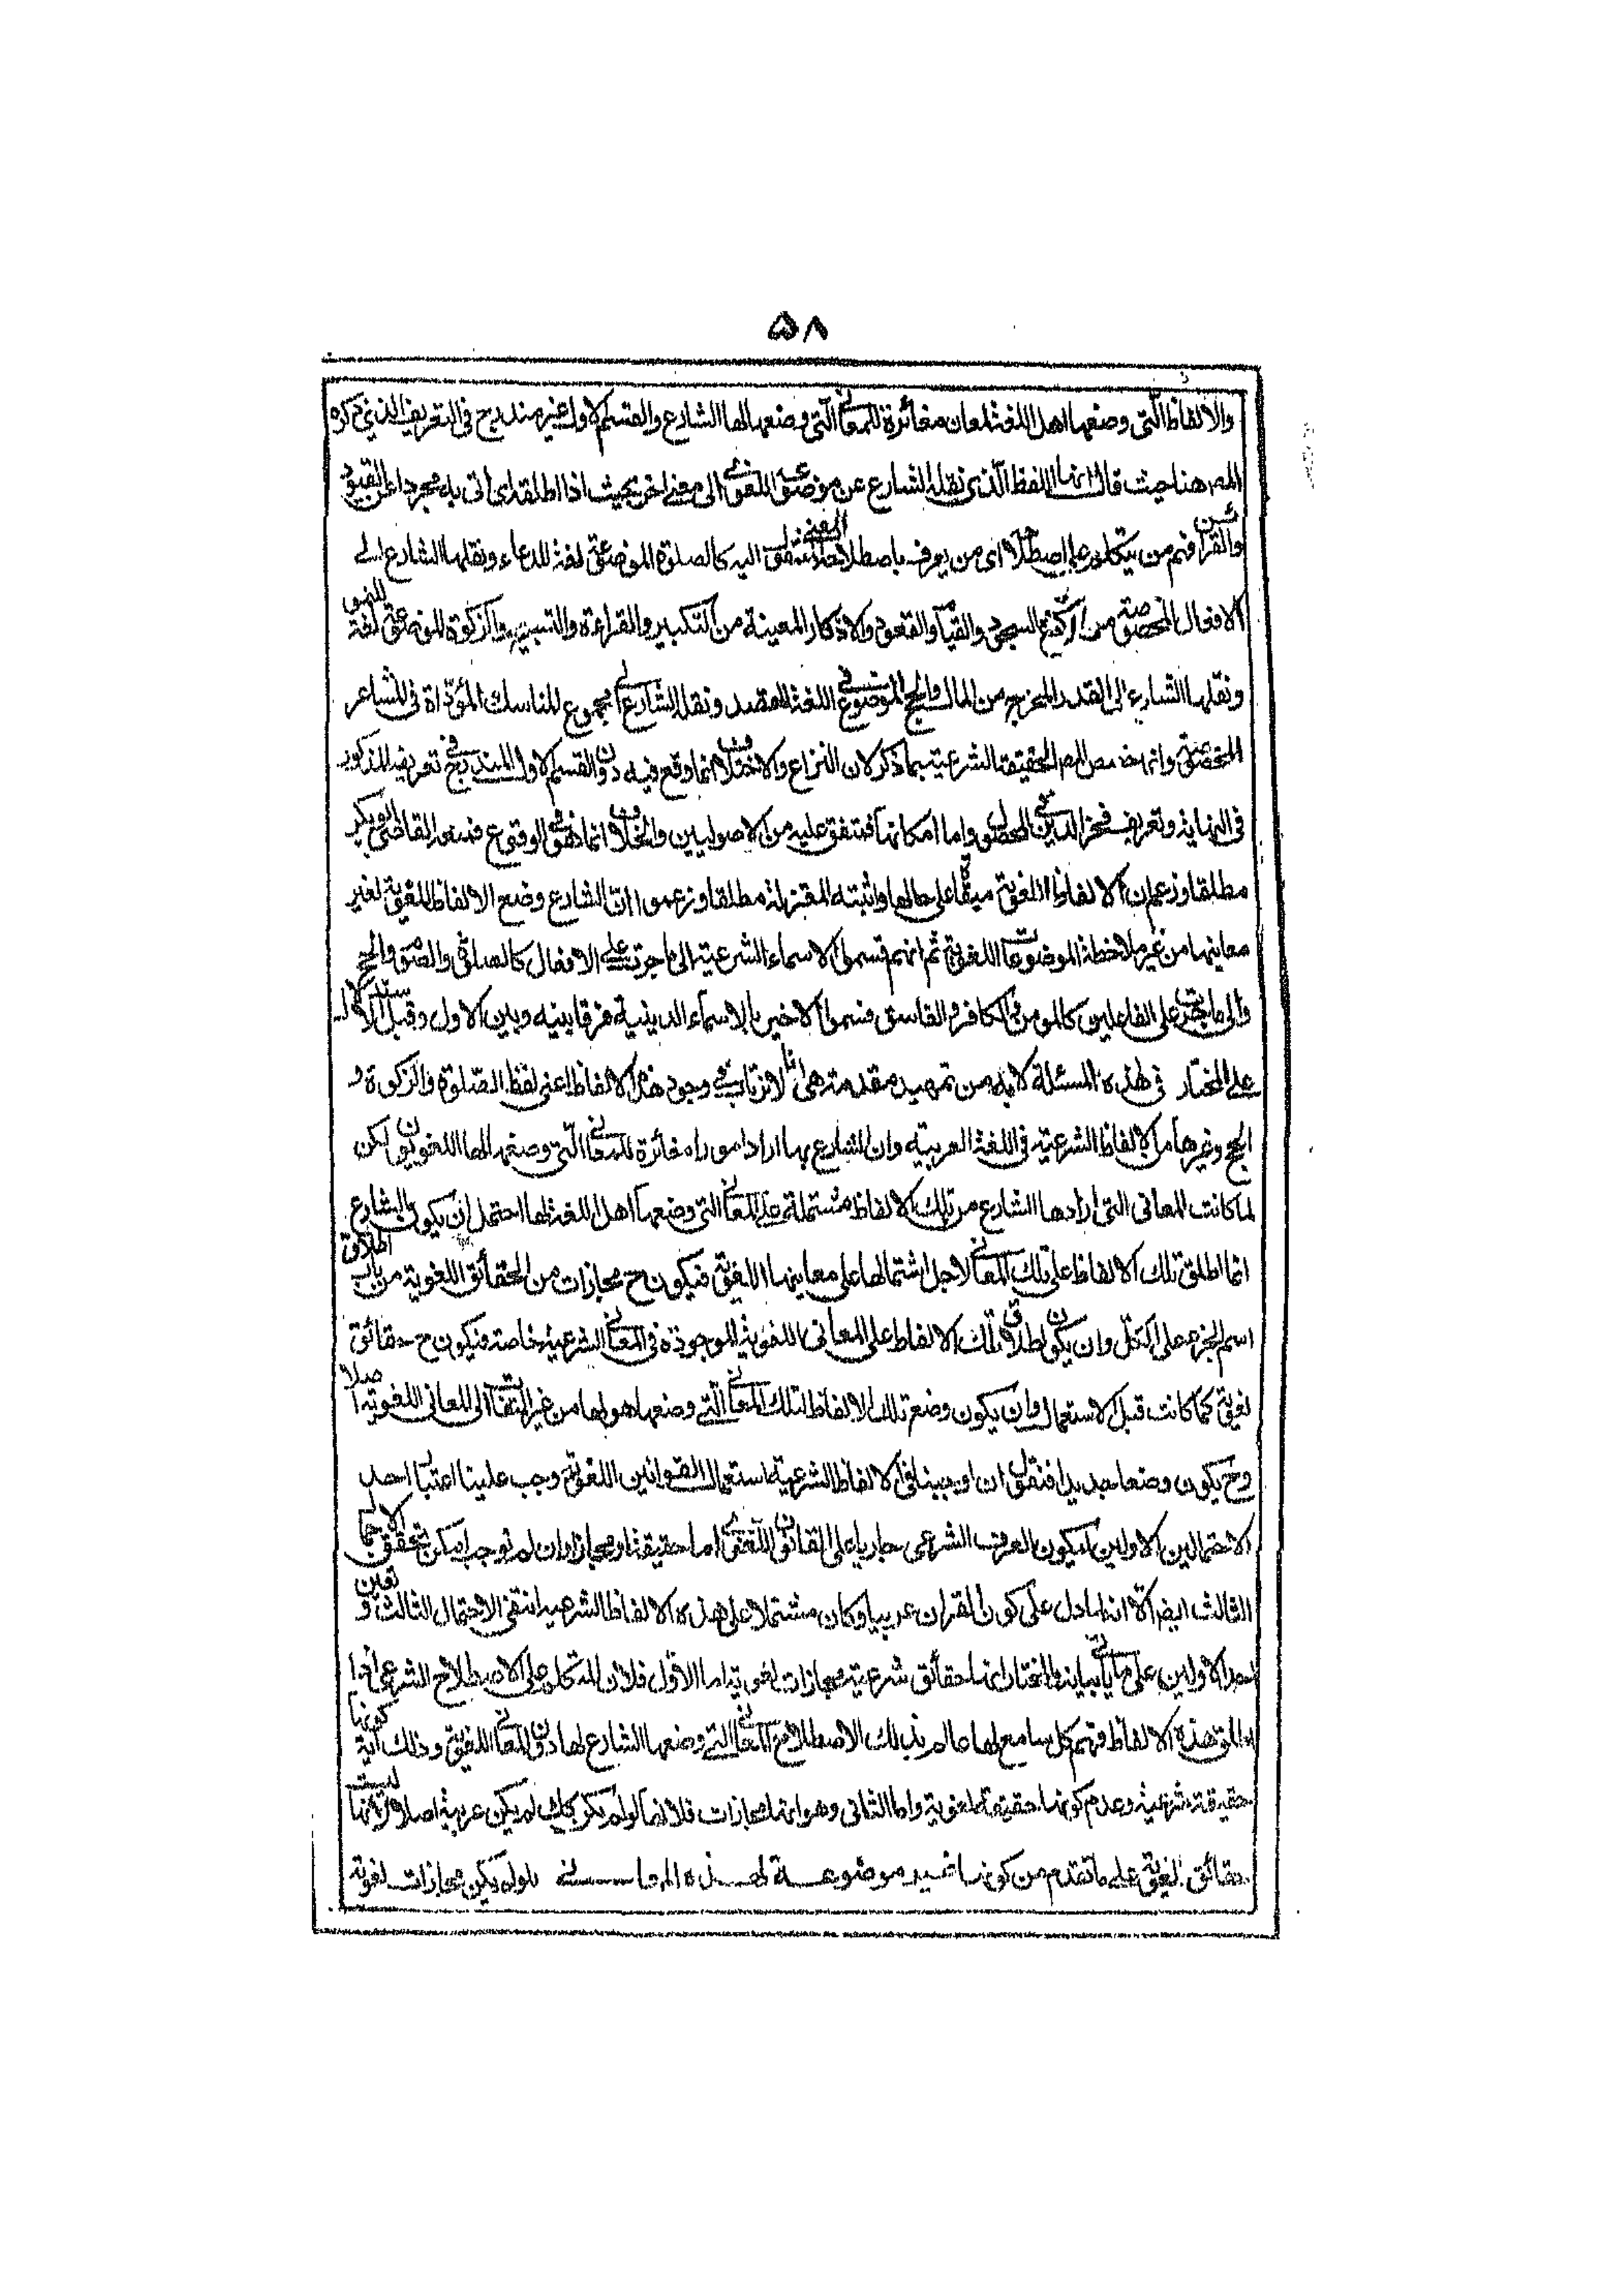 ۵۸
والالفاظ الّتى وضعها اهل اللغة لمعان مغائرة للمعانى الّتى وضعها لها الشارع والقسم الاول غير مندرج فى التعريف الذى ذكره
المص هنا حيث قال انها اللفظ الّذى نقله الشارع عن موضوعه اللغوى الى معنى اخر بحيث اذا اطلقه اى اتى به مجردا عن القيود
والقرائن فهم من يتكلم على اصطلاحه اى من يعرف باصطلاحه المعنى المنتقل اليه كالصلوة الموضوعة لغة للدعاء ونقلها الشارع الى
الافعال المخصوصة من الركوع والسجود والقيام والقعود والاذكار المعينة من التكبير والقراءة والتسبيح والزكوة الموضوعة لغة للنمو
ونقلها الشارع الى القدر المخرج من المال والحج الموضوع فى اللغة للقصد ونقله الشارع الى مجموع المناسك المؤداة فى المشاعر
المخصوصة وانما خصص المص الحقيقة الشرعية بما ذكر لان النزاع والاختلاف انما وقع فيه دون القسم الاول المندرج فى تعريفه المذكور
فى النهاية وتعريف فخر الدين فى المحصول واما امكانها فمتفق عليه من الاصوليين والخلاف انما هو فى الوقوع فمنعه القاضى ابو بكر
مطلقا وزعم ان الالفاظ اللغوية مبقاة على حالها واثبته المعتزلة مطلقا وزعموا ان الشارع وضع الالفاظ اللغوية لغير
معانيها من غير ملاحظة الموضوعات اللغوية ثم انهم قسموا الاسماء الشرعية الى ما جرت على الافعال كالصلوة والصوم والحج
والى ما جرت على الفاعلين كالمومن والكافر والفاسق فسموا الاخير بالاسماء الدينية فرقا بينه وبين الاول وقبل الاستدلال
على المختار فى هذه المسئلة لابد من تمهيد مقدمة هى انا لا نرتاب فى وجود هذه الالفاظ اعنى لفظ الصّلوة والزكوة و
الحج وغيرها من الالفاظ الشرعية فى اللغة العربية وان الشارع بها اراد امورا مغائرة للمعانى الّتى وضعها لها اللغويون لكن
لما كانت المعانى التى ارادها الشارع من تلك الالفاظ مشتملة على المعانى التى وضعها اهل اللغة لها احتمل ان يكون الشارع
انما اطلق تلك الالفاظ على تلك المعانى لاجل اشتمالها على معانيها اللغوية فيكون ح مجازات من الحقائق اللغوية من باب اطلاق
اسم الجزء على الكل وان يكون اطلاق تلك الالفاظ على المعانى اللغوية الموجودة فى المعانى الشرعية خاصة فيكون ح حقائق
لغوية كما كانت قبل الاستعمال وان يكون وضع تلك الالفاظ لتلك المعانى الّتى وضعها هو لها من غير التفات الى المعانى اللغوية اصلا
وح يكون وضعا جديدا فنقول ان اوجبنا فى الالفاظ الشرعية استعمال القوانين اللغوية وجب علينا اعتبار احد
الاحتمالين الاولين ليكون العرف الشرعى جاريا على القانون اللغوى اما حقيقة او مجازا وان لم نوجب امكن تحقق الاحتمال
الثالث ايضا الا انه لما دل على كون القران عربيا وكان مشتملا على هذه الالفاظ الشرعية انتفى الاحتمال الثالث وتعين
احد الاولين على ما ياتى بيانه والمختار انها حقائق شرعية مجازات لغوية اما الاول فلان المتكلم على الاصطلاح الشرعى اذا
اطلق هذه الالفاظ فهم كل سامع لها عالم بذلك الاصطلاح المعانى التى وضعها الشارع لها دون المعانى اللغوية وذلك اية كونها
حقيقة شرعية وعدم كونها حقيقة لغوية واما الثانى وهو انها مجازات فلانها لو لم يكن كك لم يكن عربية اصلا لانها ليست
حقائق لغوية على ما تقدم من كونها غير موضوعة لهذه المعانى فلو لم يكن مجازات لغوية